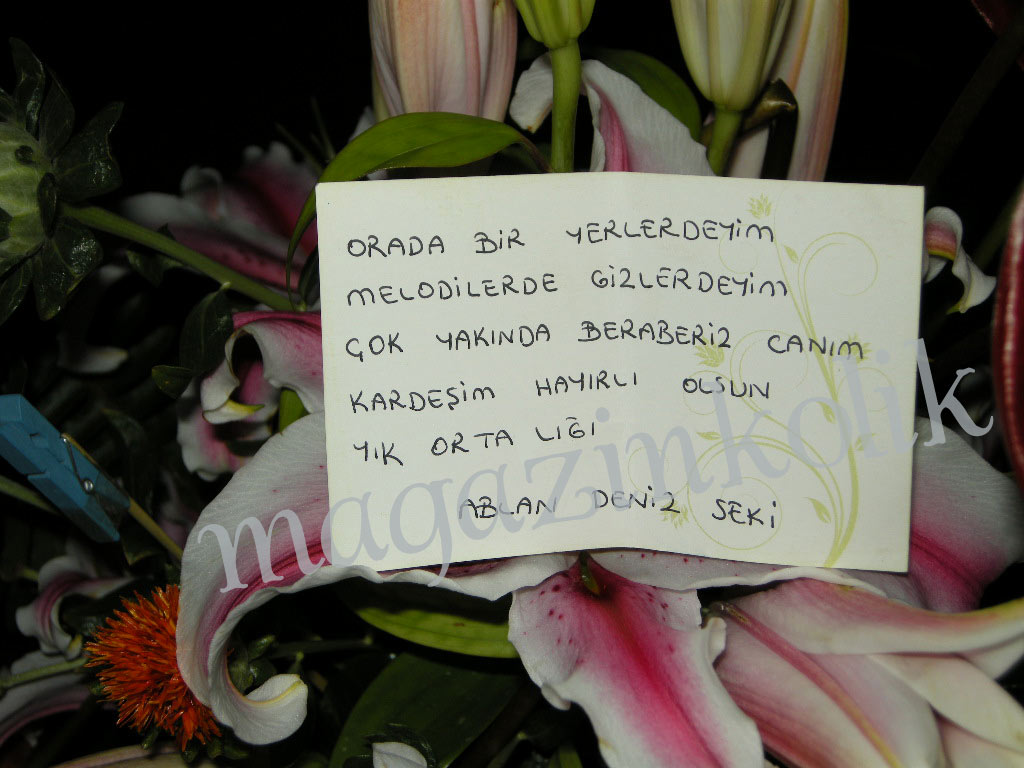 ORADA BİR YERLERDEYİM
MELODİLERDE GİZLERDEYİM
ÇOK YAKINDA BERABERİZ CANIM
KARDEŞİM HAYIRLI OLSUN
YIK ORTA LIĞI
ABLAN DENİZ SEKİ
magazinkolik